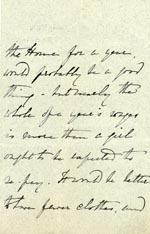 the Home for a year,
would probably be a good
thing - but surely the
whole of a year's wages
is more than a girl
ought to be expected to
re pay. It would be better
to have fewer clothes, and